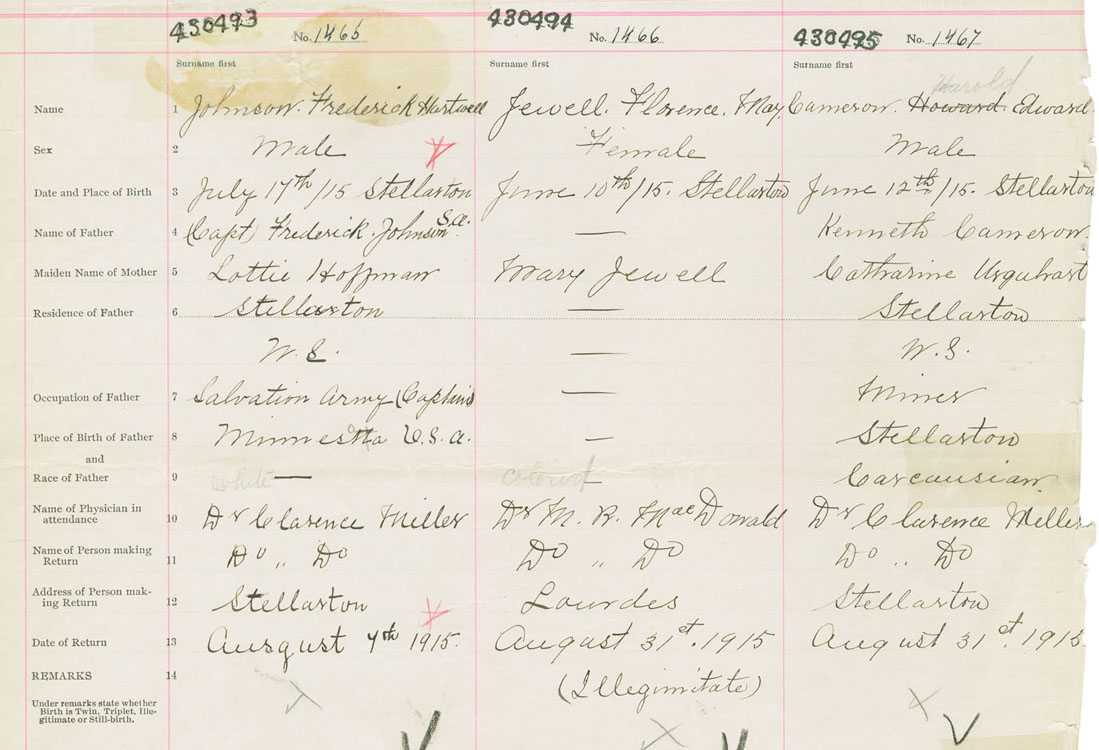 430493 No. 1465 430494 No. 1466 430495 No. 1467
Surname first Surname first Surname first
Harold
Name 1 Johnson. Frederick Hartwell Jewell. Florence. May. Cameron. Howard. Edward.
Sex 2 Male Female Male
Date and Place of Birth 3 July 17th/15 Stellarton June 10th/15. Stellarton June 12th/15. Stellarton
Name of Father 4 (Capt) Frederick. Johnson S.A. — Kenneth Cameron.
Maiden Name of Mother 5 Lottie Hoffman Mary Jewell Catharine Urquhart
Residence of Father 6 Stellarton — Stellarton
N.S. — N.S.
Occupation of Father 7 Salvation Army (Captain) — Miner
Place of Birth of Father 8 Minnesota U.S.A. — Stellarton
and
Race of Father 9 white — Colored Carcausian.
Name of Physician in
attendance 10 Dr Clarence Miller Dr M. R. MacDonald Dr Clarence Miller
Name of Person making
Return 11 Do „ Do Do „ Do Do „ Do
Address of Person mak-
ing Return 12 Stellarton Lourdes Stellarton
Date of Return 13 Aurgust 4th 1915. August 31st. 1915 August 31st. 1915.
REMARKS 14 (Illegimitate)
Under remarks state whether
Birth is Twin, Triplet, Ille-
gitimate or Still-birth.